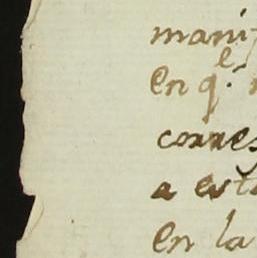 mani
en q.e
corres
a est
en la